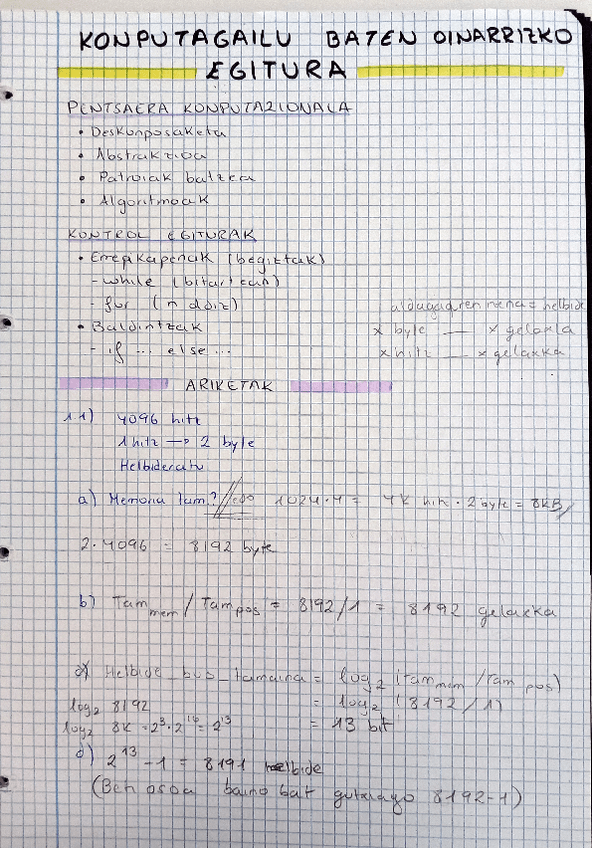 KONPUTAGAILU BATEN OINARRIZKO
EGITURA
PENTSAERA KONPUTAZIONALA
• Deskonposaketa
• Abstrakzioa
• Patroiak batzea
• Algoritmoak
KONTROL EGITURAK
• Errepikapenak (begiztak)
- while (bitartean)
- for (n aldiz)
• Baldintzak
- if ... else ...
= helbide
x byte — x gelaxka
x hitz — x gelaxka
ARIKETAK
1.1) 4096 hitz
1 hitz → 2 byte
Helbideratu
a) Memoria tam? 1024·4 = 4K hitz · 2 byte = 8KB
2·4096 = 8192 byte
b) Tam mem / Tam pos = 8192/1 = 8192 gelaxka
c) Helbide_bus_tamaina = log2 (Tam mem / Tam pos)
log2 8192 = log2 (8192/1)
log2 8K = 2^3 · 2^10 = 2^13 = 13 bit
d) 2^13 - 1 = 8191 helbide
(Beti osoa baino bat gutxiago 8192-1)